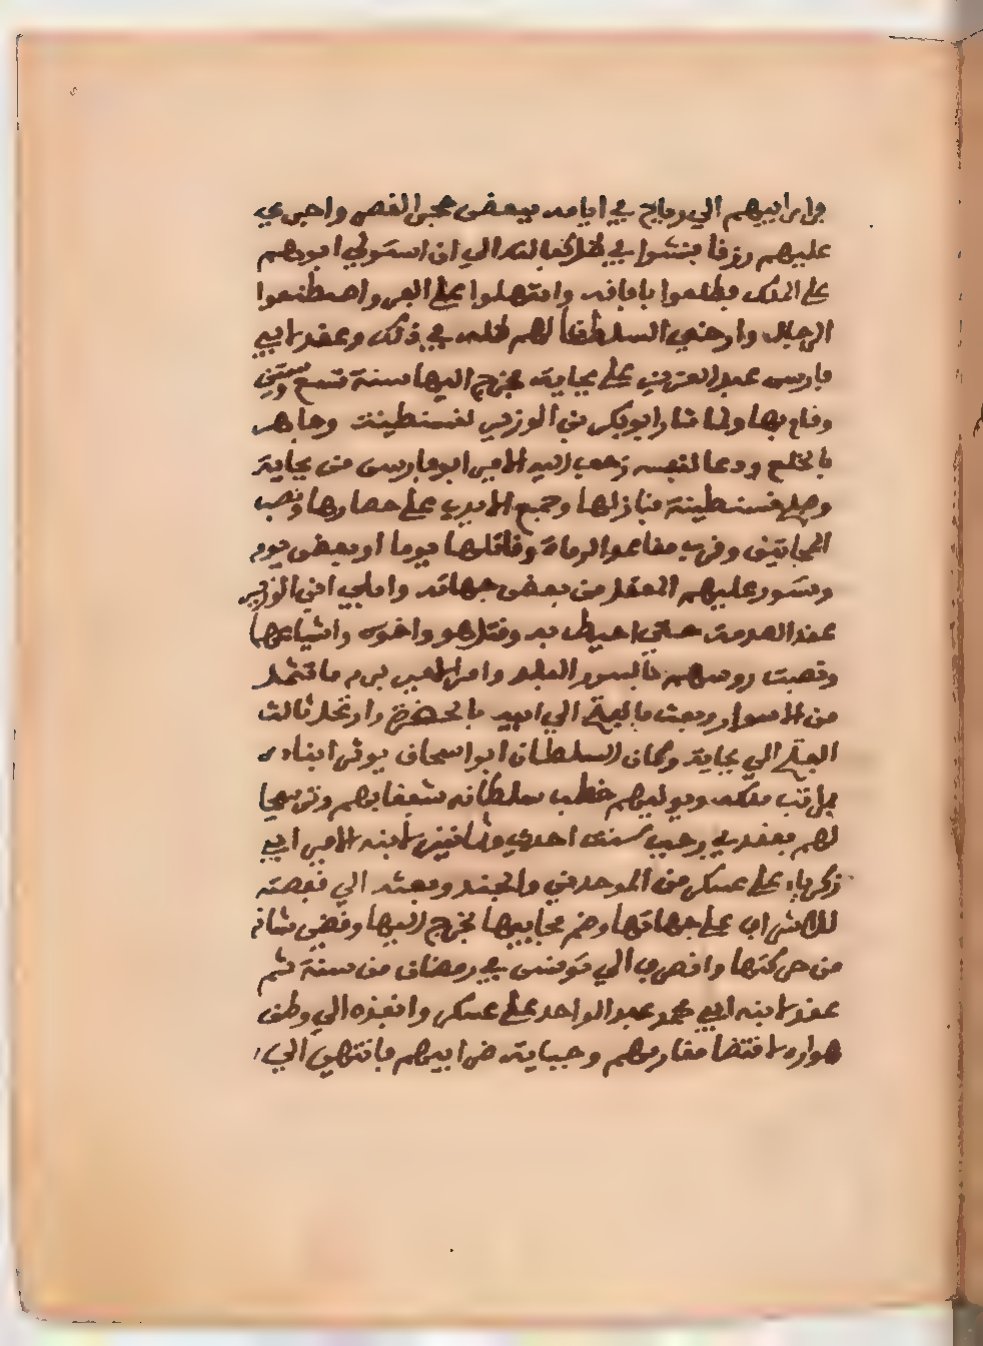 وابن ابيهم الي رباح في ايامه ببعض حجر القصر واجري
عليهم رزقا فنشوا في ظل كفالته الي ان استولي ابوهم
علي الملك فطلعوا بافاقه واستهلوا علي العز واصطنعوا
الرجال وارخي السلطان لهم ظله في ذلك وعقد لابي
فارس عبد العزيز علي بجاية فخرج اليها سنة تسع وستين
وقام بها ولما ثار ابو بكر بن الوزير لقسنطينة وجاهر
بالخلع ودعا لنفسه زحف اليه الامير ابو فارس من بجاية
وصلي قسنطينة فنازلها وجمع الايدي علي حصارها ونصب
المجانيق وقرب مقاعد الرماة وقاتلها يوما او بعض يوم
وتسور عليهم المعقل من بعض جهاته وابلي ابن الوزير
عند الصدمة حتي احيط به وقتل هو واخوه واشياعهما
ونصبت روسهم بالسور البلد وامر الامير برم ما تثلم
من الاسوار وبعث بالفتح الي ابيه بالحضرة وارتحل ثالث
الفتح الي بجاية وكان السلطان ابو اسحاق يوثر ابناءه
بمراتب ملكه ويوليهم خطب سلطانه شغفا بهم وترشيحا
لهم فعقد في رجب سنة احدي وثمانين لابنه الامير ابي
زكرياء علي عسكر من الموحدين والجند وبعثه الي قفصة
للاشراف علي جهاتها وضم مجابيها فخرج اليها وقضي شانه
من حركتها وانصرف الي تونس في رمضان من سنة ثم
عقد لابنه ابي محمد عبد الواحد علي عسكر وانفذه الي وطن
هواره لاقتضا مغارمهم وجباية ضرايبهم فانتهي الي